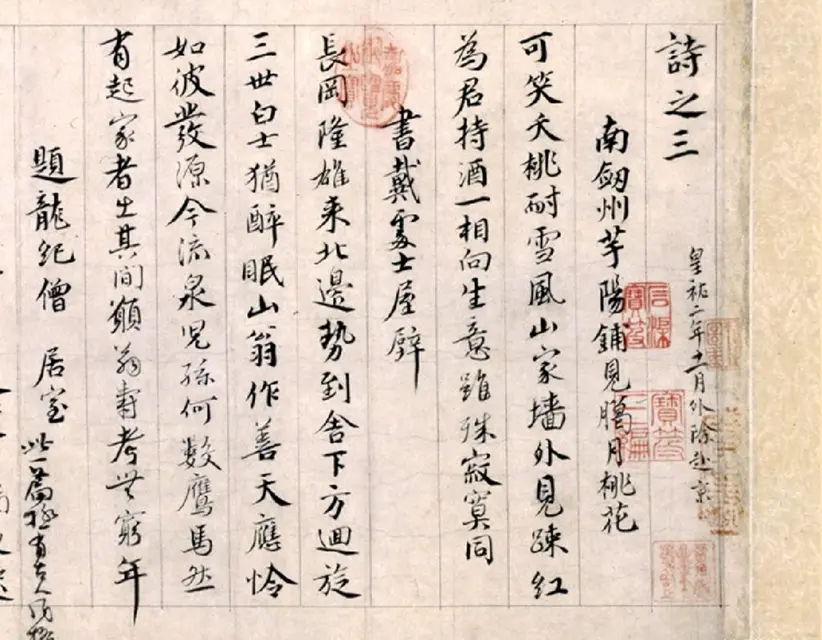 詩之三
皇祐二年十一月外除赴京
南劔州芋陽鋪見臈月桃花
可笑夭桃耐雪風山家墻外見踈紅
為君持酒一相向生意雖殊寂寞同
書戴處士屋壁
長岡隆雄來北邊勢到舍下方迴旋
三世白士猶醉眠山翁作善天應怜
如彼發源今流泉兒孫何數鷹馬然
有起家者出其間願翁壽考無窮年
題龍紀僧居室
此一篇極有古人風